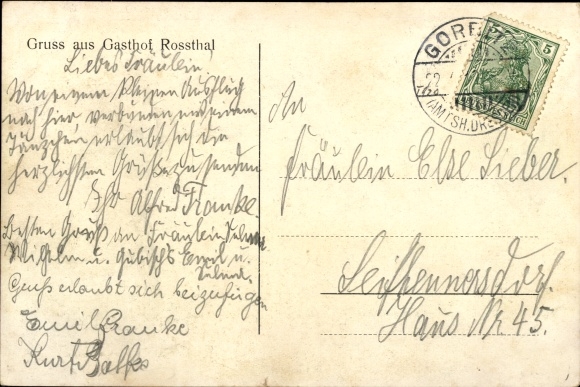 Gruss aus Gasthof Rossthal
Liebes Fräulein!
Von einem kleinen Ausflug
nach hier, verbunden mit einem
Tänzchen erlaubt sich die
herzlichsten Grüße zu senden
Ihr Alfred Franke
Besten Gruß an Fräulein
Wilhelm u. Emil u.
Gruß erlaubt sich beizufügen
Emil Franke
Kurt
GORB
(AMTSH. DRES
5
An
Fräulein Else Lieber.
Seifhennersdorf.
Haus Nr 45.